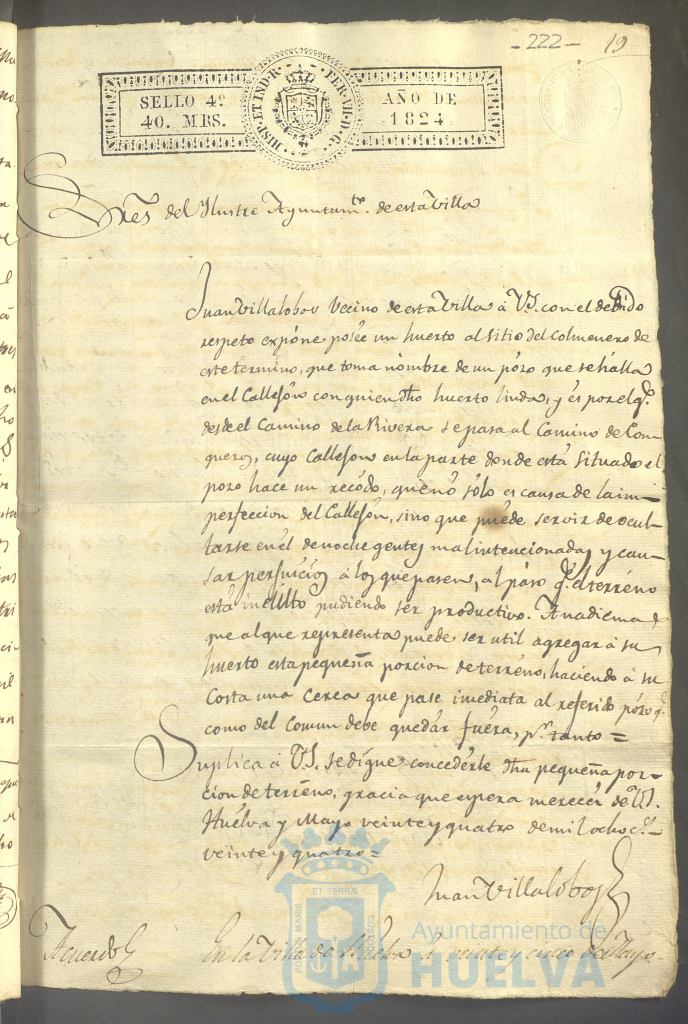 -222- 19
SELLO 4º
40. MRS.
HISP. ET IND. R. FER. VII. D. G.
AÑO DE
1824
Sres del Ilustre Ayuntamto. de esta Villa
Juan Villalobos Vecino de esta Villa á VS. con el debido
respeto expóne poseé un huerto al sitio del Colmenero de
este termino, que toma nombre de un pózo que se hálla
en el Callejón con quien dho huerto linda, y és por el q.
desde el Camino de la Rivera se pasa al Camino de Con-
queros, cuyo Callejon en la parte donde está situado el
pozo hace un recódo, que nó sólo es causa de la im-
perfeccion del Callejón, sino que puéde servir de ocul-
tarse en él de noche gentes mal intencionadas y cau-
sar perjuicios á los que pasen, al páso q. el terréno
está inculto pudiendo ser productivo. A nadie mas
que al que representa puede ser util agregar á su
huerto esta pequeña porcion de terréno, haciendo á su
Costa una Cerca que pase imediata al referido pózo q.
como del Comun debe quedár fuéra, pr. tanto =
Suplica á VS. se dígne concederle dha pequeña por-
cion de terréno, gracia que espera merecér de VS.
Huélva y Mayo veinte y quatro de mil ochos.
veinte y quatro =
Juan Villalobos
Acuerdo
En la Villa de Huelva á veinte y cinco de Mayo
PORTUS MARIS
ET TERRÆ
CUSTODIA
Ayuntamiento de
HUELVA